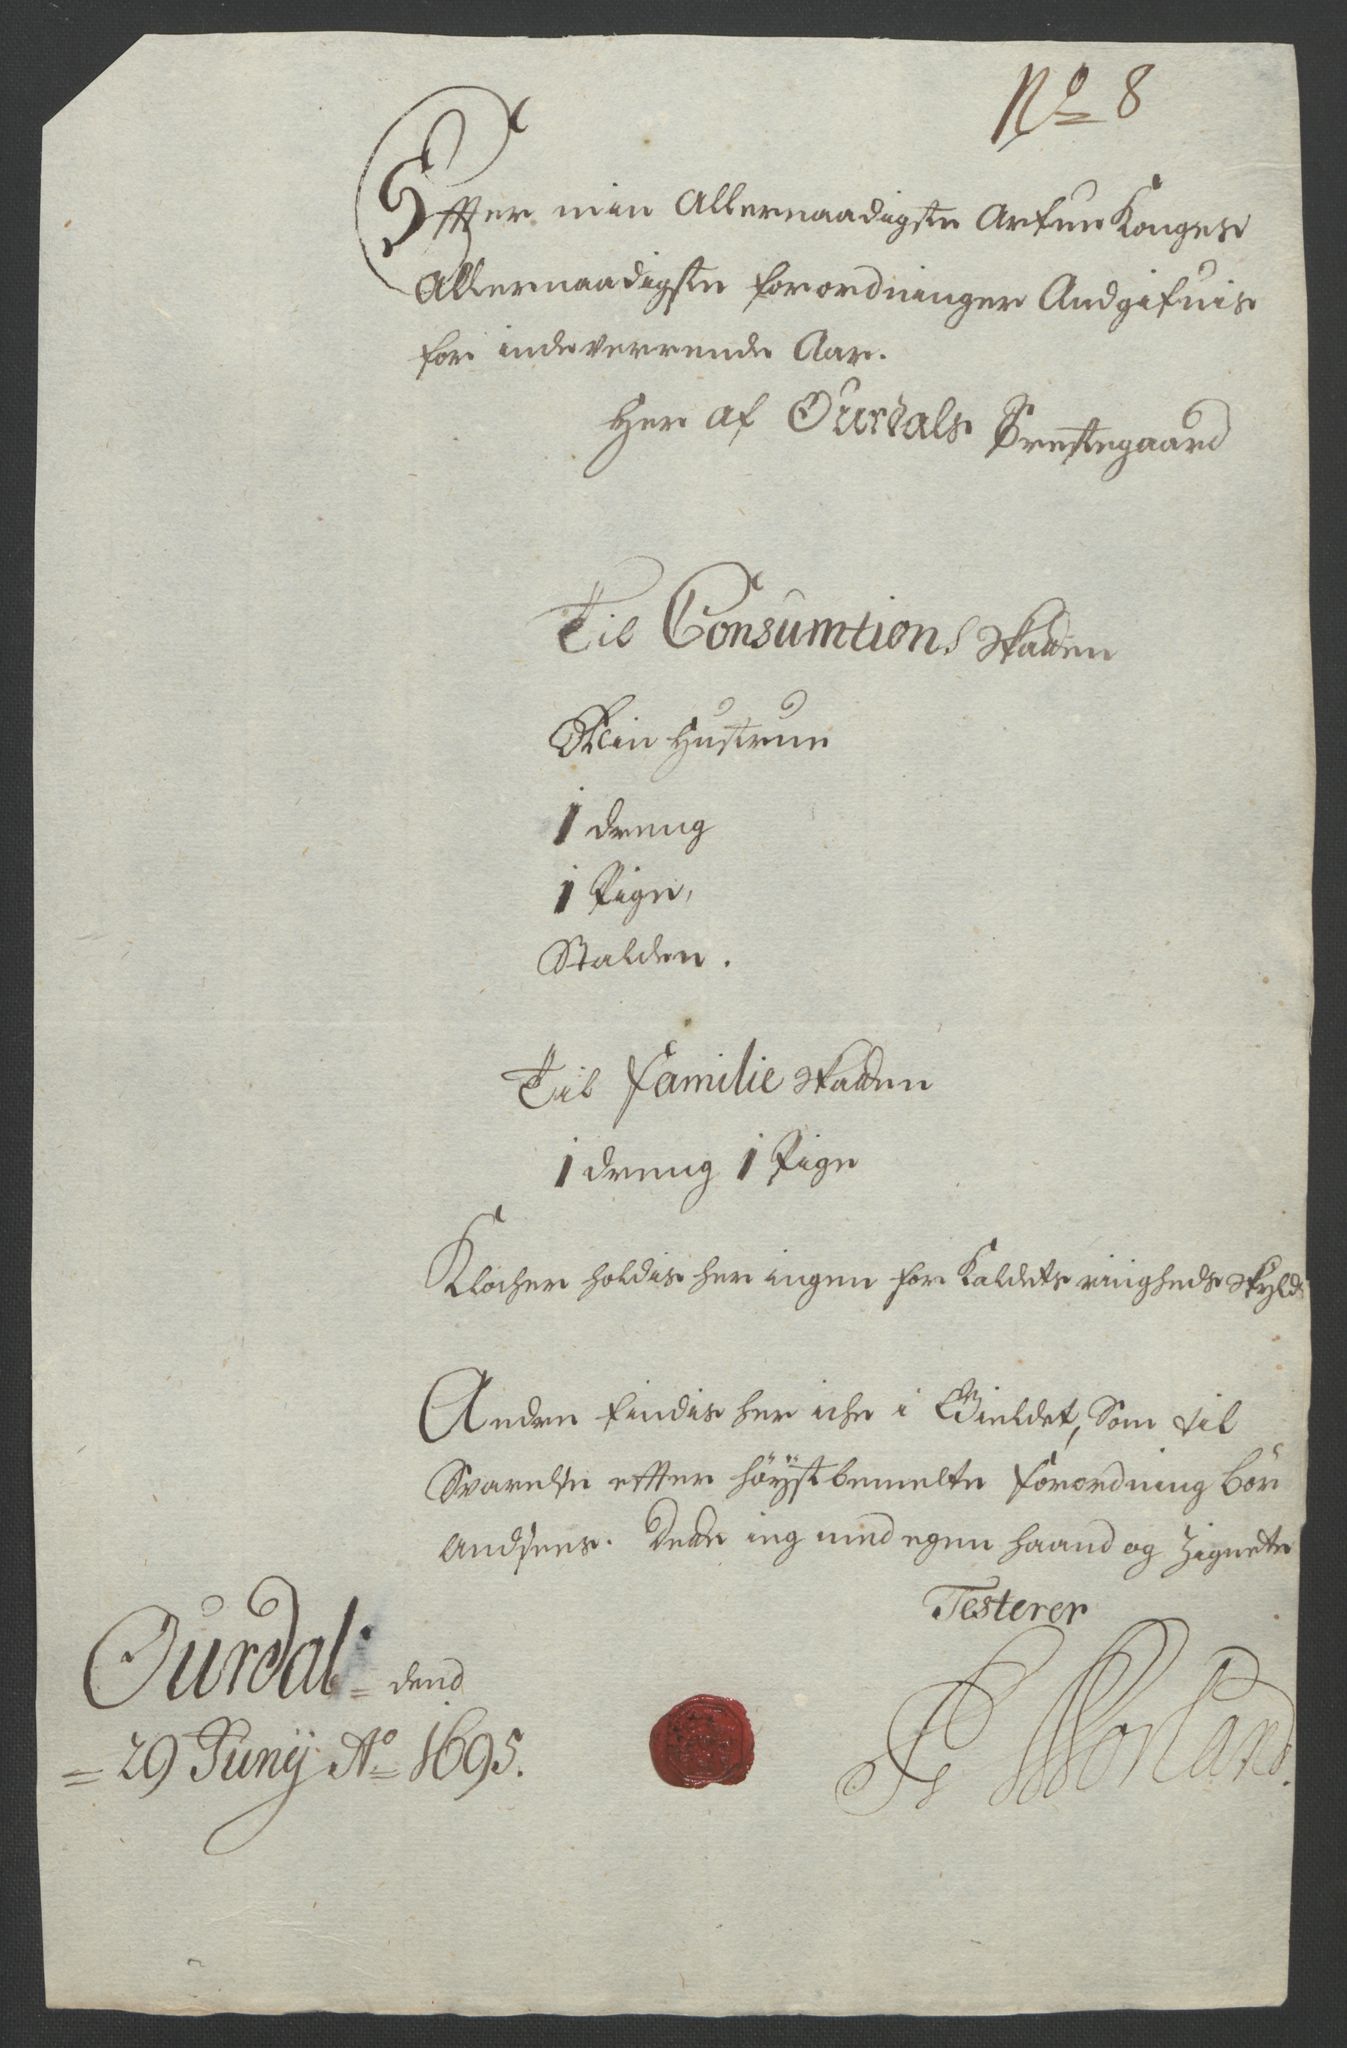 No 8
Effter min Allernaadigste Arfue Konges
Allernaadigste forordninger Andgifuis
for indeverrende Aar.
Her af Ourdals Prestegaard
Til Consumtions skatten
Min Hustrue
1 dreng
1 Pige,
Stalden.
Til Familie skatten
1 dreng 1 Pige
Klocher holdis her ingen for Kaldets ringheds skyld
Andre findis her iche i Gieldet, Som til
Svarelse effter höystbemelte forordning bör
Ansees. Dette ieg med egen haand og Zignete
Testerer
Ourdal dend
29 Junij Ao 1695.